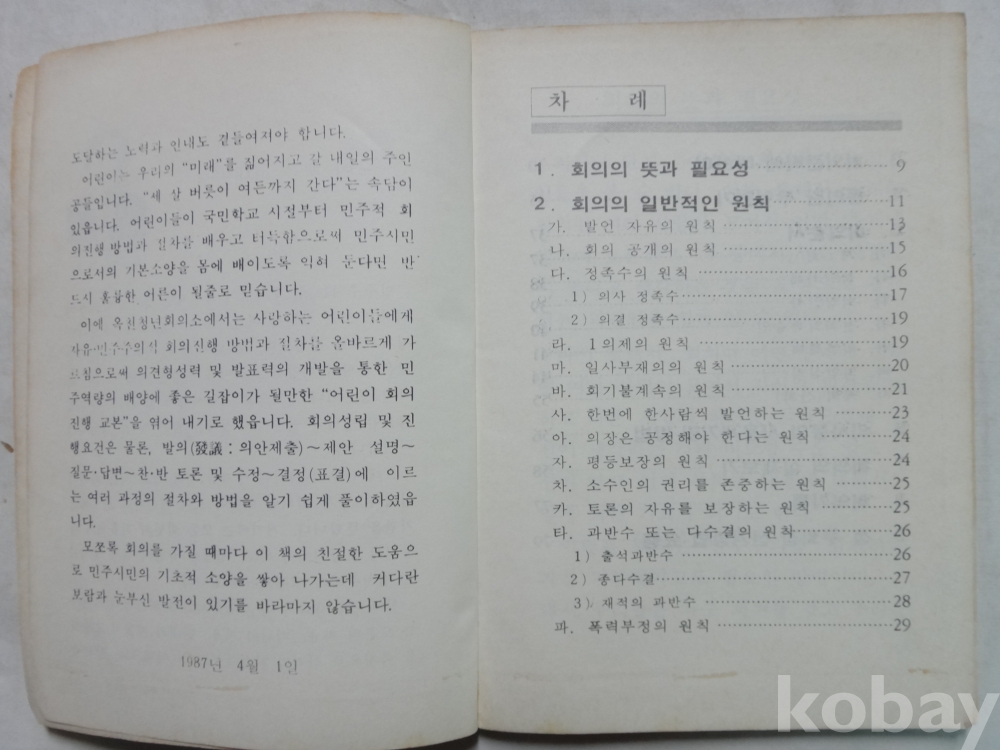 도달하는 노력과 인내도 곁들여져야 합니다.
어린이는 우리의 "미래"를 짊어지고 갈 내일의 주인
공들입니다. "세 살 버릇이 여든까지 간다"는 속담이
있읍니다. 어린이들이 국민학교 시절부터 민주적 회
의진행 방법과 절차를 배우고 터득함으로써 민주시민
으로서의 기본소양을 몸에 배이도록 익혀 둔다면 반
드시 훌륭한 어른이 될줄로 믿습니다.
이에 옥천청년회의소에서는 사랑하는 어린이들에게
자유·민주주의식 회의진행 방법과 절차를 올바르게 가
르침으로써 의견형성력 및 발표력의 개발을 통한 민
주역량의 배양에 좋은 길잡이가 될만한 "어린이 회의
진행 교본"을 엮어 내기로 했읍니다. 회의성립 및 진
행요건은 물론, 발의(發議 : 의안제출)~제안 설명~
질문·답변~찬·반 토론 및 수정~결정(표결)에 이르
는 여러 과정의 절차와 방법을 알기 쉽게 풀이하였읍
니다.
모쪼록 회의를 가질 때마다 이 책의 친절한 도움으
로 민주시민의 기초적 소양을 쌓아 나가는데 커다란
보람과 눈부신 발전이 있기를 바라마지 않습니다.
1987년 4월 1일
차 례
1. 회의의 뜻과 필요성 ············ 9
2. 회의의 일반적인 원칙 ············ 11
가. 발언 자유의 원칙 ············ 13
나. 회의 공개의 원칙 ············ 15
다. 정족수의 원칙 ············ 16
1) 의사 정족수 ············ 17
2) 의결 정족수 ············ 19
라. 1의제의 원칙 ············ 19
마. 일사부재의의 원칙 ············ 20
바. 회기불계속의 원칙 ············ 21
사. 한번에 한사람씩 발언하는 원칙 ············ 23
아. 의장은 공정해야 한다는 원칙 ············ 24
자. 평등보장의 원칙 ············ 24
차. 소수인의 권리를 존중하는 원칙 ············ 25
카. 토론의 자유를 보장하는 원칙 ············ 25
타. 과반수 또는 다수결의 원칙 ············ 26
1) 출석과반수 ············ 26
2) 종다수결 ············ 27
3) 재적의 과반수 ············ 28
파. 폭력부정의 원칙 ············ 29
kobay